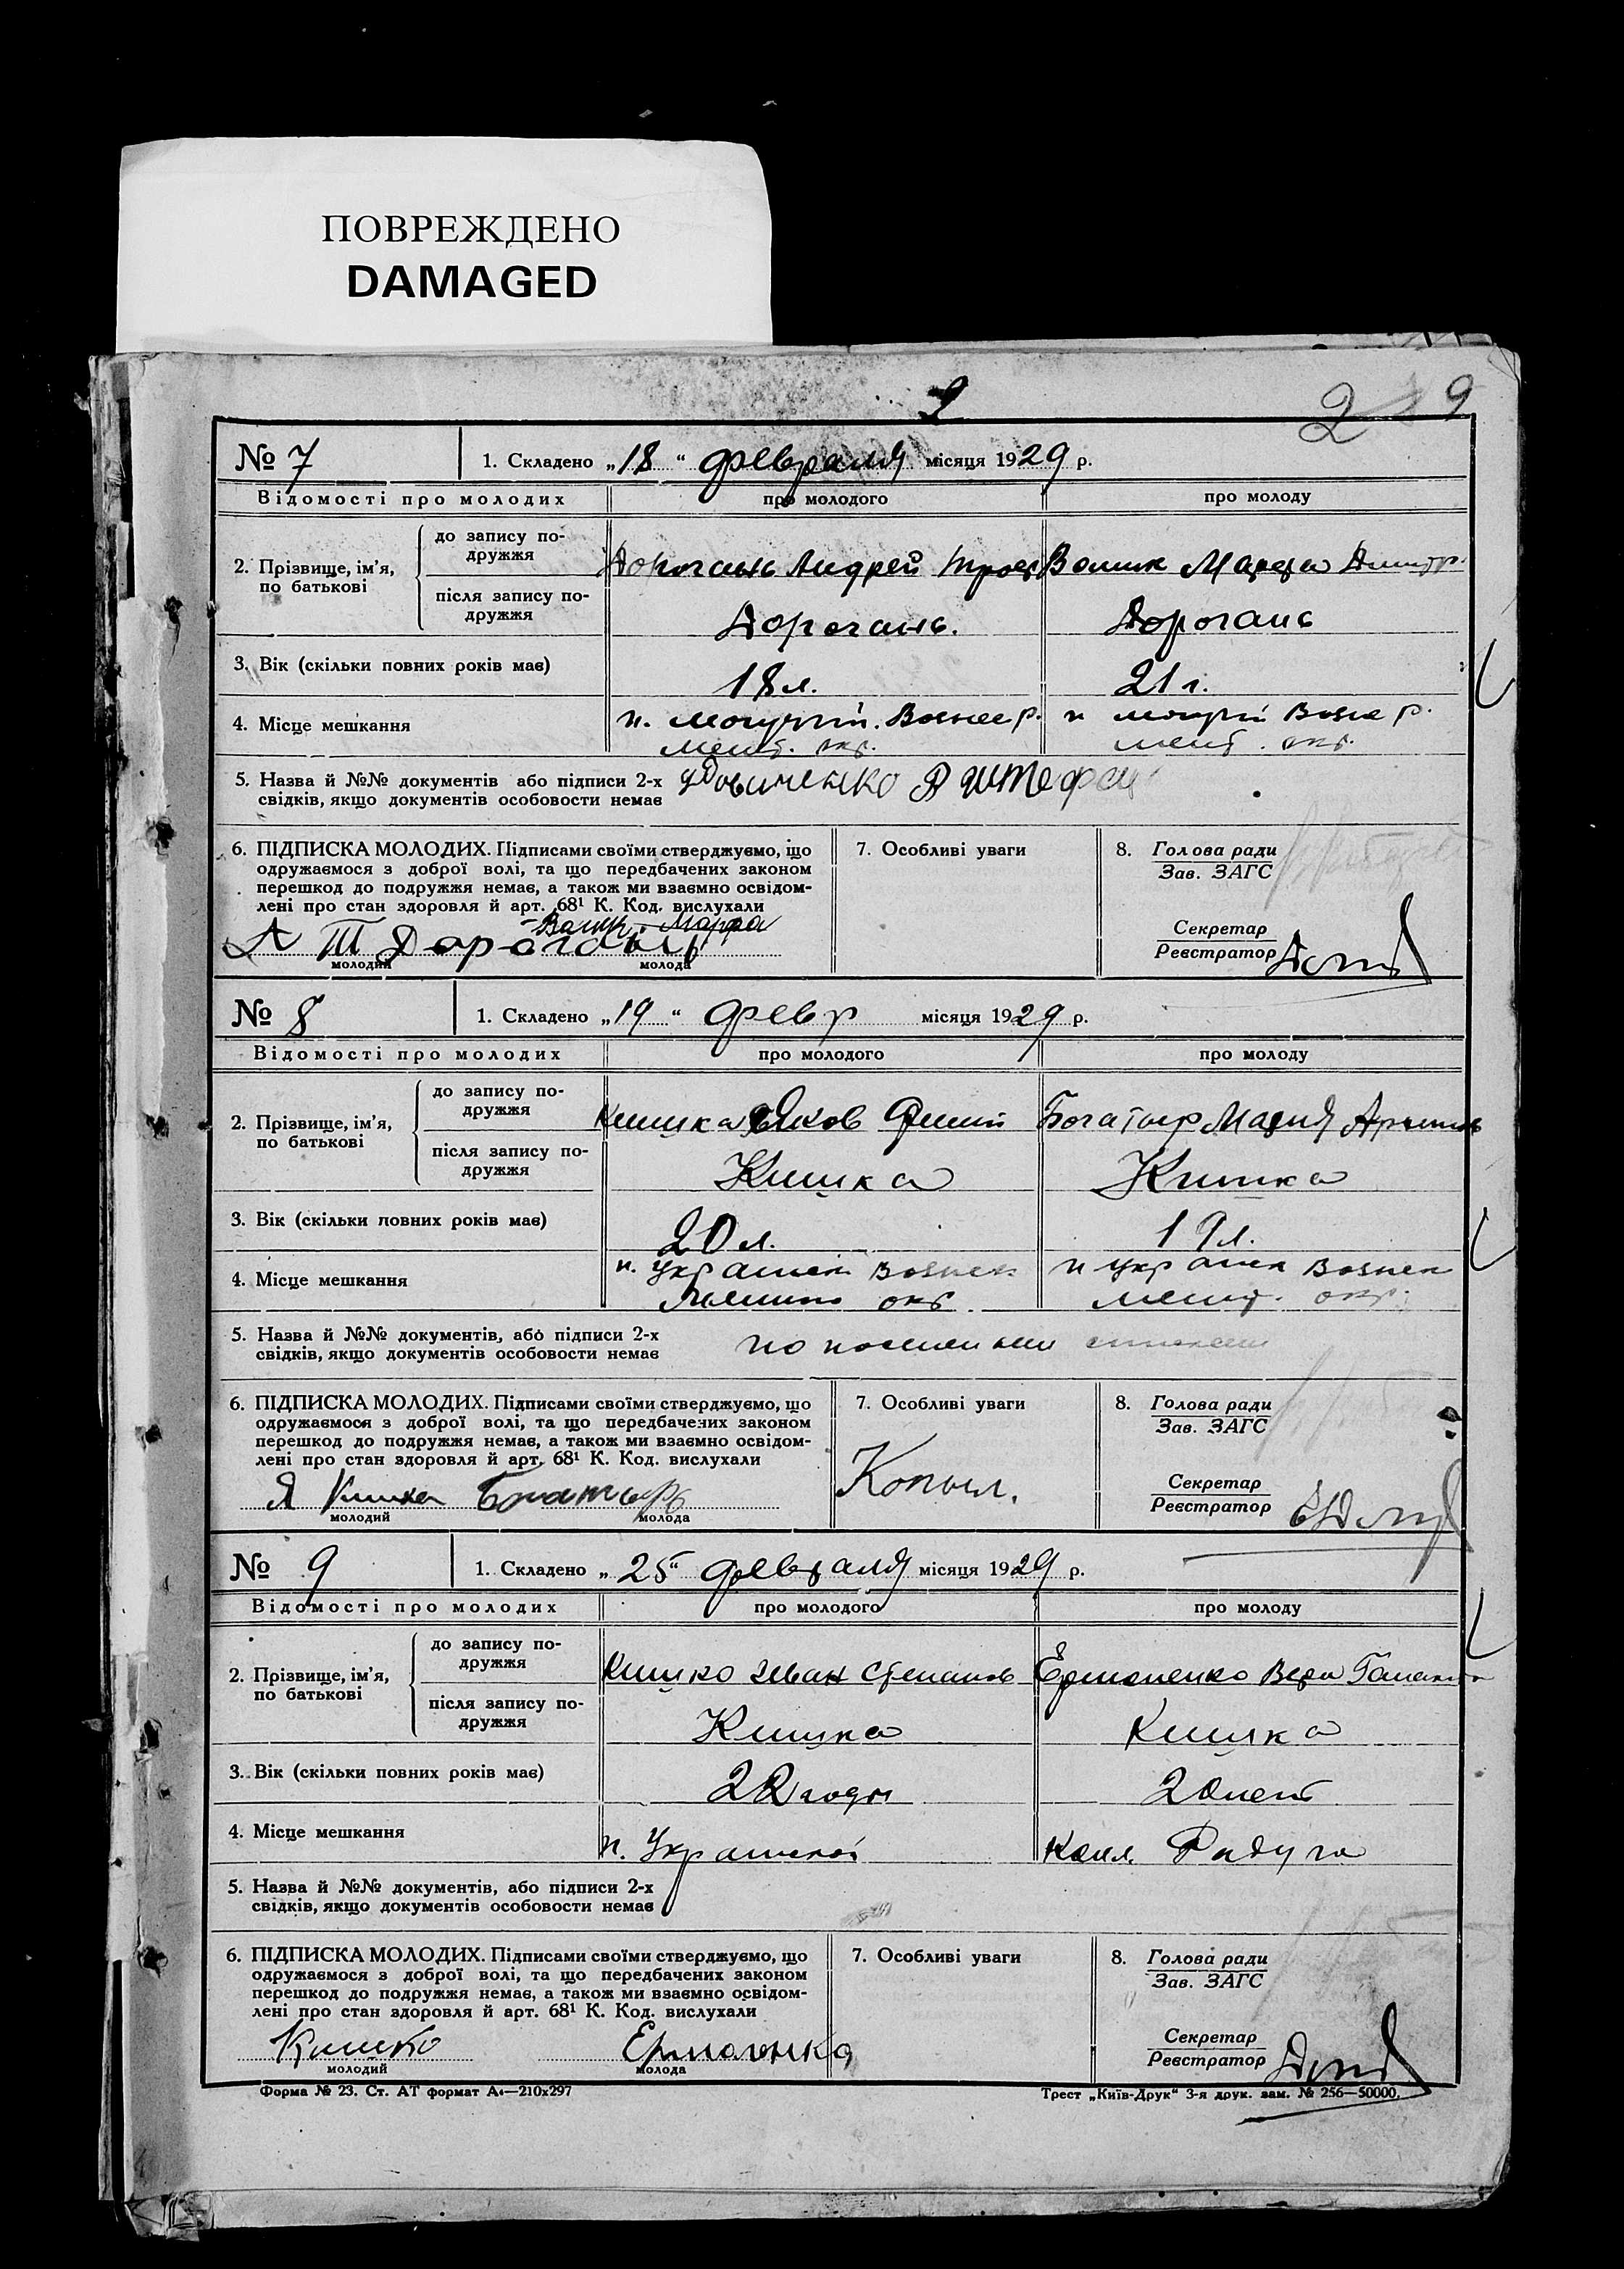 ПОВРЕЖДЕНО
DAMAGED
2
2 9
№ 7 1. Складено „18“ февраля місяця 1929 р.
Відомості про молодих про молодого про молоду
2. Прізвище, ім’я, по батькові
до запису подружжя Дорогань Андрей Троф Волик Марфа Дмитр.
після запису подружжя Дорогань. Дорогань
3. Вік (скільки повних років має) 18 л. 21 г.
4. Місце мешкання п. Могучий. Вознес р. п Могучий Возне р.
Мелит. окр. Мелит. окр.
5. Назва й №№ документів або підписи 2-х
свідків, якщо документів особовости немає
6. ПІДПИСКА МОЛОДИХ. Підписами своїми стверджуємо, що
одружаємося з доброї волі, та що передбачених законом
перешкод до подружжя немає, а також ми взаємно освідом-
лені про стан здоровля й арт. 68¹ К. Код. вислухали
Волик Марфа
А Т Дорогань
молодий молода
7. Особливі уваги
8. Голова ради
Зав. ЗАГС
Секретар
Реєстратор
№ 8 1. Складено „19“ февр місяця 1929 р.
Відомості про молодих про молодого про молоду
2. Прізвище, ім’я, по батькові
до запису подружжя Кишка Яков Богатыр Мария
після запису подружжя Кишка Кишка
3. Вік (скільки повних років має) 20 л. 19 л.
4. Місце мешкання п. Украинск Вознен п Украинск Вознен
окр. Мелит. окр.
5. Назва й №№ документів, або підписи 2-х
свідків, якщо документів особовости немає
по посемейным спискам
6. ПІДПИСКА МОЛОДИХ. Підписами своїми стверджуємо, що
одружаємося з доброї волі, та що передбачених законом
перешкод до подружжя немає, а також ми взаємно освідом-
лені про стан здоровля й арт. 68¹ К. Код. вислухали
Я Кишка Богатырь
молодий молода
7. Особливі уваги
Копыл.
8. Голова ради
Зав. ЗАГС
Секретар
Реєстратор
№ 9 1. Складено „25“ февраля місяця 1929 р.
Відомості про молодих про молодого про молоду
2. Прізвище, ім’я, по батькові
до запису подружжя Кишко Иван Степанов Ермоленко Вера
після запису подружжя Кишка Кишка
3. Вік (скільки повних років має) 22 годы 20 лет
4. Місце мешкання п. Украинский Радуга
5. Назва й №№ документів, або підписи 2-х
свідків, якщо документів особовости немає
6. ПІДПИСКА МОЛОДИХ. Підписами своїми стверджуємо, що
одружаємося з доброї волі, та що передбачених законом
перешкод до подружжя немає, а також ми взаємно освідом-
лені про стан здоровля й арт. 68¹ К. Код. вислухали
Кишко Ермоленко
молодий молода
7. Особливі уваги
8. Голова ради
Зав. ЗАГС
Секретар
Реєстратор
Форма № 23. Ст. АТ формат А4—210х297 Трест „Київ-Друк“ 3-я друк. зам. № 256—50000.